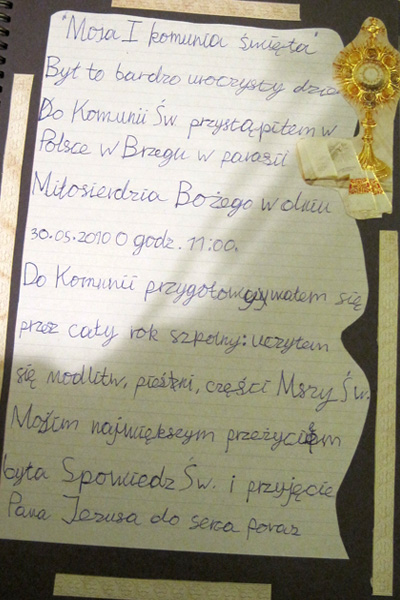 "Moja I komunia święta"
Był to bardzo uroczysty dzie
Do Komunii Św. przystąpiłem w
Polsce w Brzegu w parafii
Miłosierdzia Bożego w dniu
30.05.2010 O godz. 11:00.
Do Komunii przygotowywałem się
przez cały rok szkolny: uczyłem
się modlitw, pieśni, części Mszy Św.
Moim największym przeżyciem
była Spowiedz Św. i przyjęcie
Pana Jezusa do serca poraz